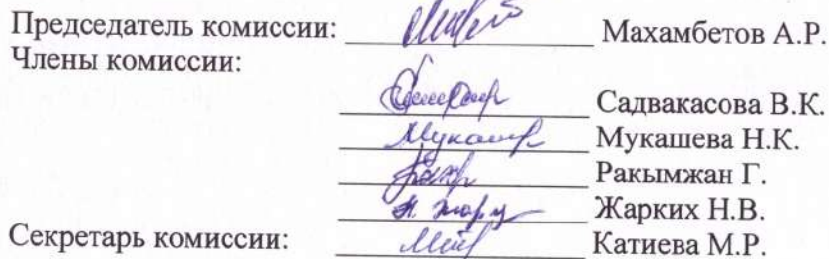 Председатель комиссии: Махамбетов А.Р.
Члены комиссии:
Садвакасова В.К.
Мукашева Н.К.
Ракымжан Г.
Жарких Н.В.
Секретарь комиссии: Катиева М.Р.